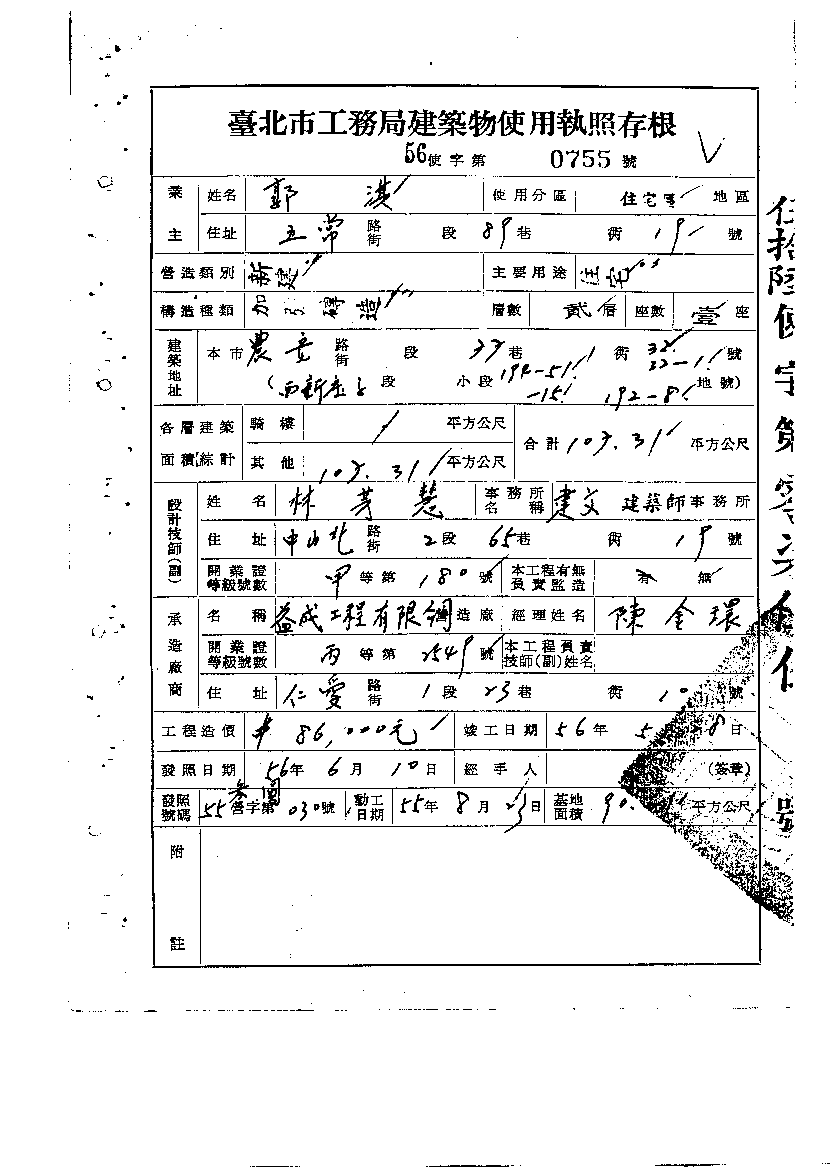 臺北市工務局建築物使用執照存根
56使字第 0755 號
業主 姓名 郭 淇 使用分區 住宅 地區
住址 五常 路街 段 89巷 衖 19 號
營造類別 新建 主要用途 住宅
構造種類 加引磚造 層數 貳層 座數 壹座
建築地址 本市 農安 路街 段 33巷 衖 32 32-1 號
(西新庄子段 小段 194-51 -15 192-8 地號)
各層建築面積綜計 騎樓 平方公尺 合計 103.31 平方公尺
其他 103.31 平方公尺
設計技師(副) 姓名 林芳慧 事務所名稱 建文 建築師事務所
住址 中山北 路街 2段 65巷 衖 19號
開業證等級號數 甲等第 180 號 本工程有無負責監造 有 無
承造廠商 名稱 益成工程有限 造廠 經理姓名 陳金環
開業證等級號數 丙等第 2549 號 本工程負責技師(副)姓名
住址 仁愛 路街 1段 23巷 衖 10 號
工程造價 86,000元 竣工日期 56年 5 8日
發照日期 56年 6月 10日 經手人 (簽章)
發照號碼 55營字第 030號 動工日期 55年 8月 23日 基地面積 90. 平方公尺
附註
伍拾陸使字第零 號